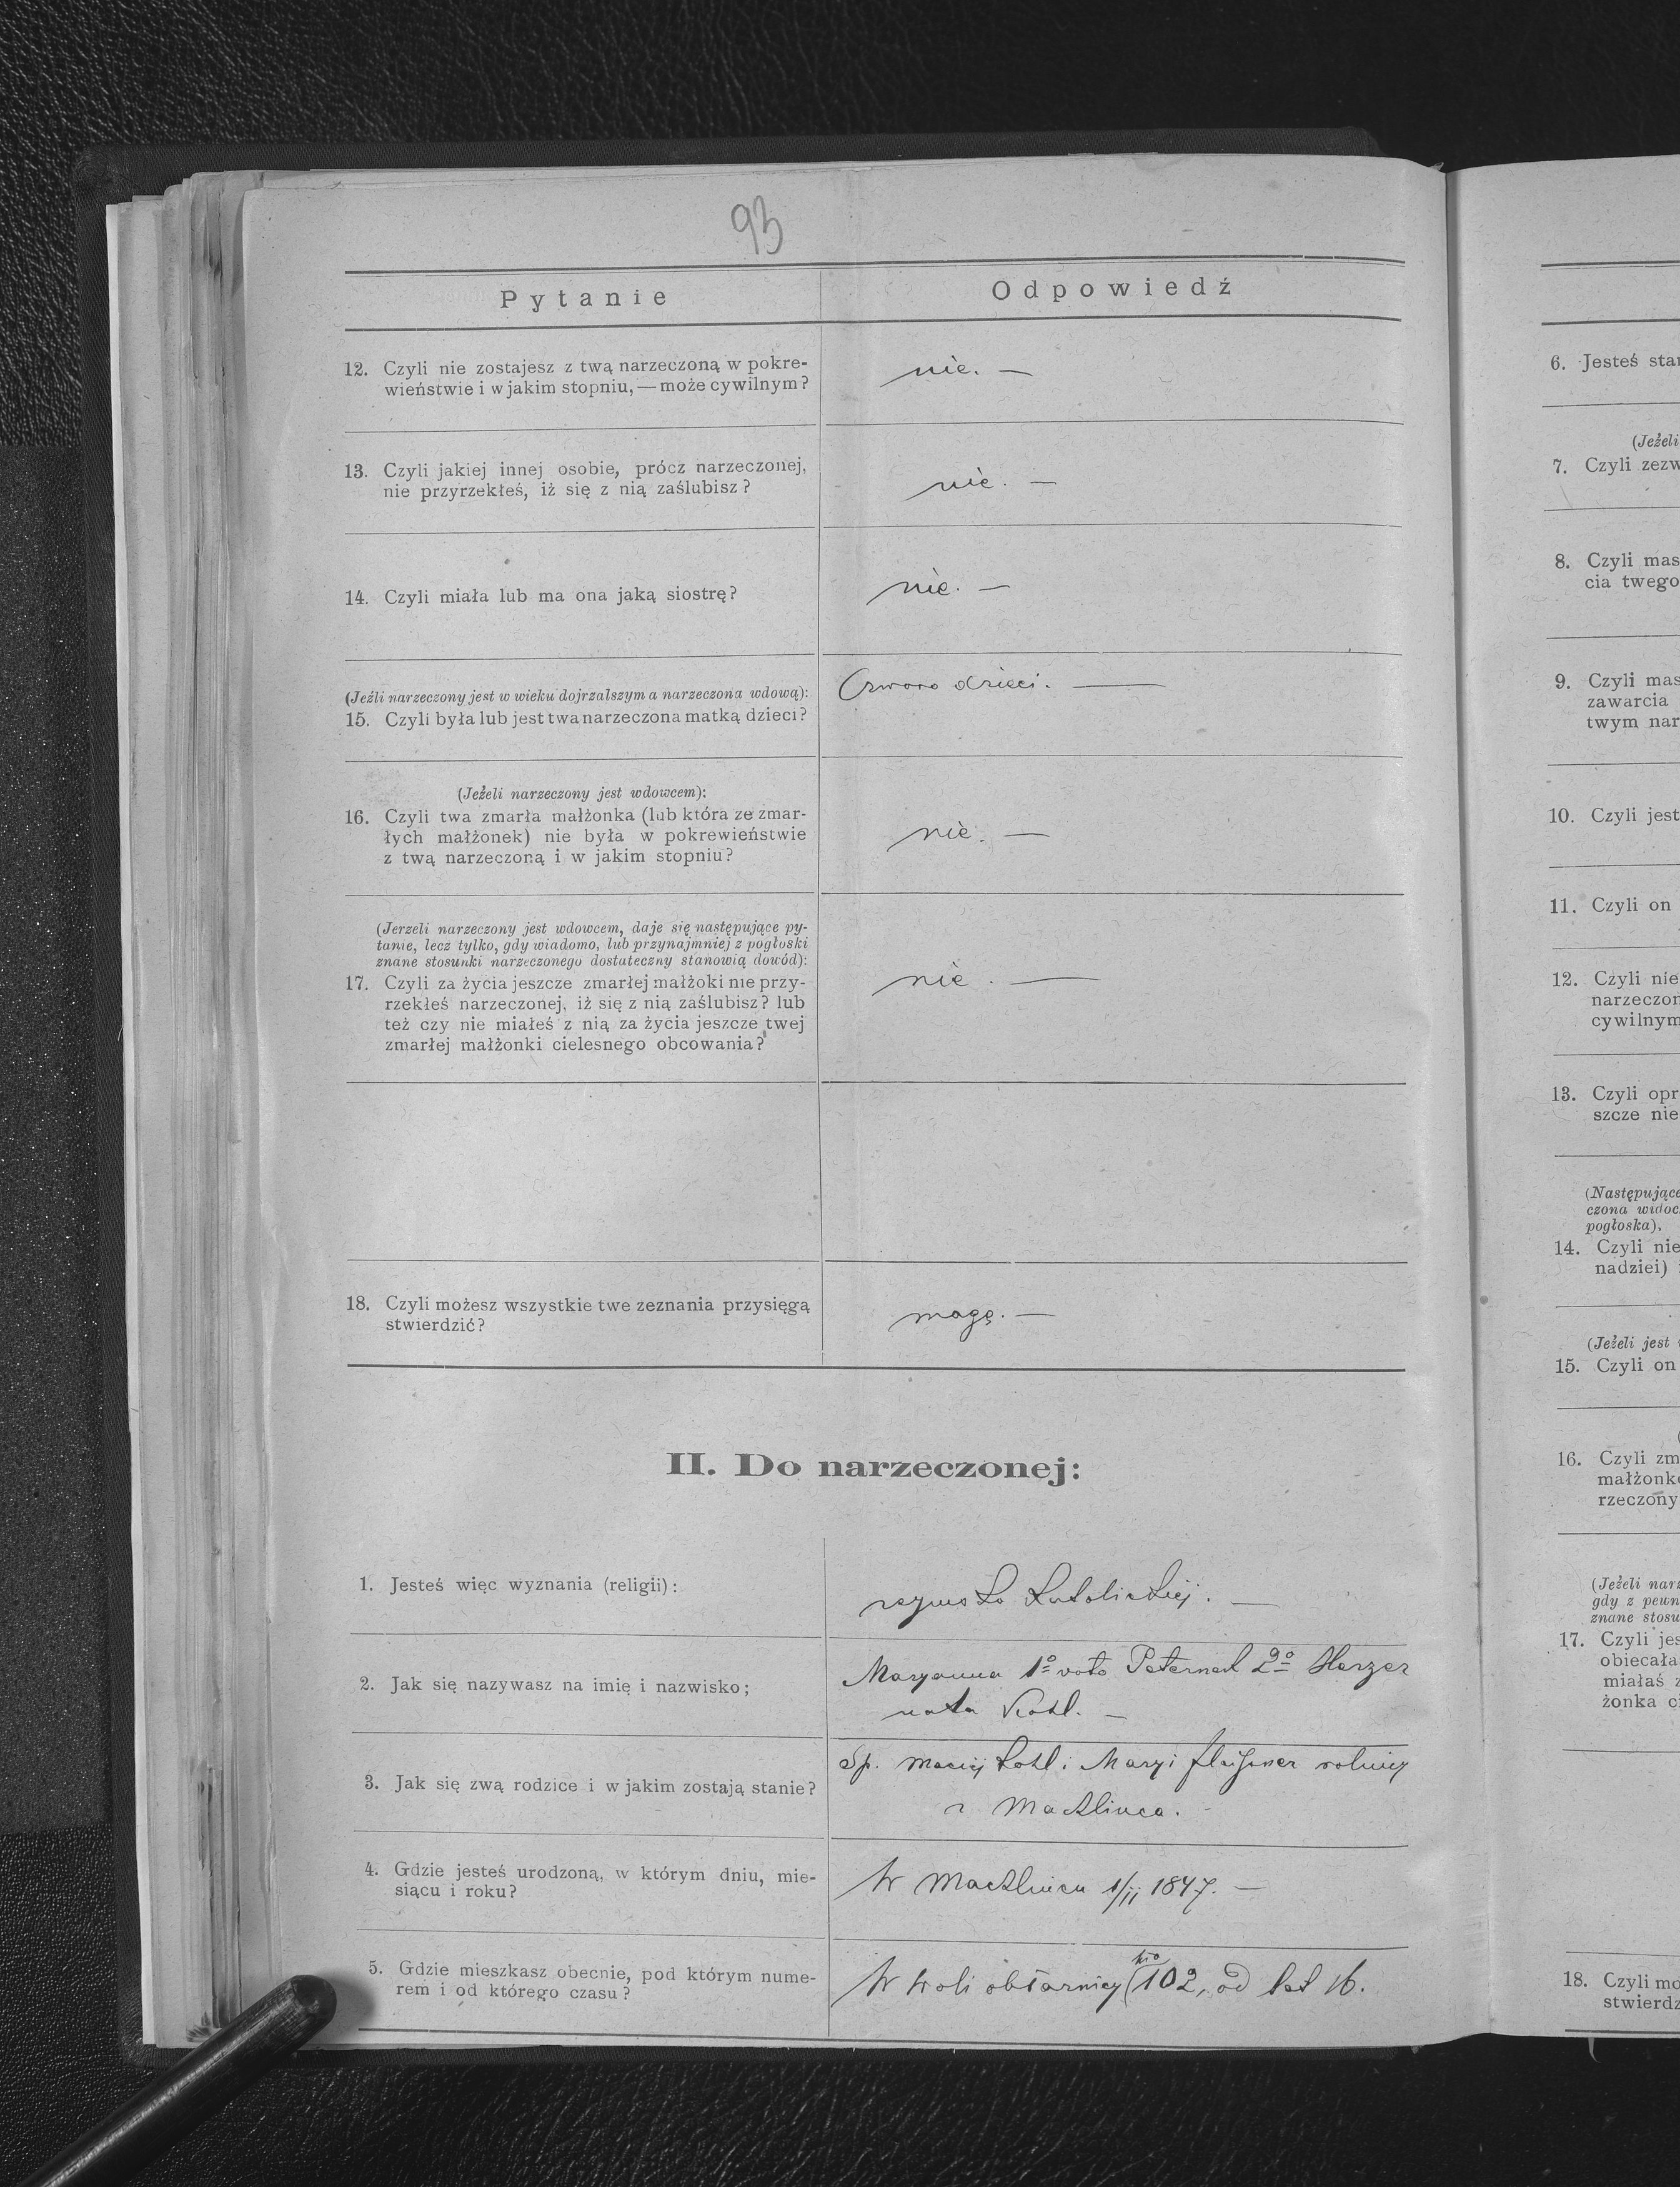 93
Pytanie
Odpowiedź
12. Czyli nie zostajesz z twą narzeczoną w pokre-
wieństwie i w jakim stopniu, — może cywilnym?
nie. —
13. Czyli jakiej innej osobie, prócz narzeczonej,
nie przyrzekłeś, iż się z nią zaślubisz?
nie. —
14. Czyli miała lub ma ona jaką siostrę?
nie. —
(Jeźli narzeczony jest w wieku dojrzalszym a narzeczona wdową):
15. Czyli była lub jest twa narzeczona matką dzieci?
Czworo dzieci. —
(Jeżeli narzeczony jest wdowcem):
16. Czyli twa zmarła małżonka (lub która ze zmar-
łych małżonek) nie była w pokrewieństwie
z twą narzeczoną i w jakim stopniu?
nie. —
(Jerzeli narzeczony jest wdowcem, daje się następujące py-
tanie, lecz tylko, gdy wiadomo, lub przynajmniej z pogłoski
znane stosunki narzeczonego dostateczny stanowią dowód):
17. Czyli za życia jeszcze zmarłej małżoki nie przy-
rzekłeś narzeczonej, iż się z nią zaślubisz? lub
też czy nie miałeś z nią za życia jeszcze twej
zmarłej małżonki cielesnego obcowania?
nie. —
18. Czyli możesz wszystkie twe zeznania przysięgą
stwierdzić?
mogę. —
II. Do narzeczonej:
1. Jesteś więc wyznania (religii):
rzymsko katolickiej. —
2. Jak się nazywasz na imię i nazwisko;
Maryanna 1º voto Peternek 2º Herzer
nata Kohl. —
3. Jak się zwą rodzice i w jakim zostają stanie?
Sp. Maciej Kohl i Maryi rolnicy
z Machlinca. -
4. Gdzie jesteś urodzoną, w którym dniu, mie-
siącu i roku?
W Machlincu 1/11 1847. —
5. Gdzie mieszkasz obecnie, pod którym nume-
rem i od którego czasu?
W Woli obłaznicy 102, od lat 16.
6. Jesteś star
(Jeżeli
7. Czyli zezw
8. Czyli mas
cia twego
9. Czyli mas
zawarcia
twym nar
10. Czyli jest
11. Czyli on
12. Czyli nie
narzeczon
cywilnym
13. Czyli opr
szcze nie
(Następujące
czona widoc
pogłoska).
14. Czyli nie
nadziei)
(Jeżeli jest
15. Czyli on
16. Czyli zm
małżonko
rzeczony
(Jeżeli narz
gdy z pewn
znane stosu
17. Czyli jes
obiecała
miałaś z
żonka ci
18. Czyli mo
stwierdz